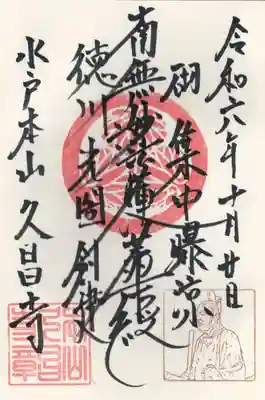 令和六年十月廿日
集中曝凉
南無妙法蓮華経
徳川光圀創建
水戸本山 久昌寺